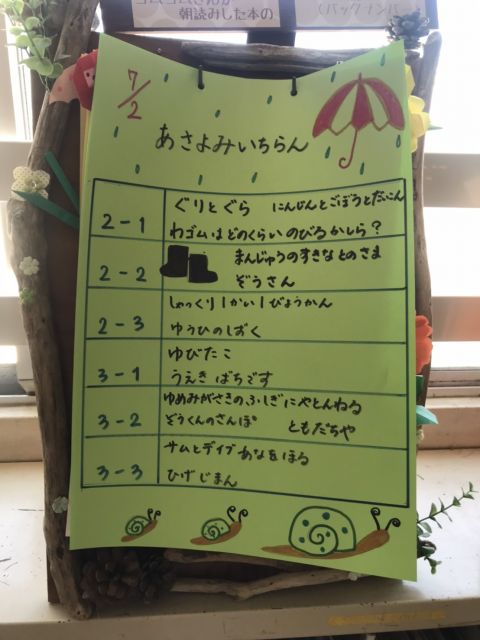 朝読みした本の
(バックナンバー
7/2
あさよみいちらん
2-1
ぐりとぐら にんじんとごぼうとだいこん
わゴムはどのくらいのびるかしら？
2-2
まんじゅうのすきなとのさま
ぞうさん
2-3
しゃっくり1かい1びょうかん
ゆうひのしずく
3-1
ゆびたこ
うえきばちです
3-2
ゆめみがさきのふしぎにやとんねる
ぞうくんのさんぽ ともだちや
3-3
サムとデイブあなをほる
ひげじまん